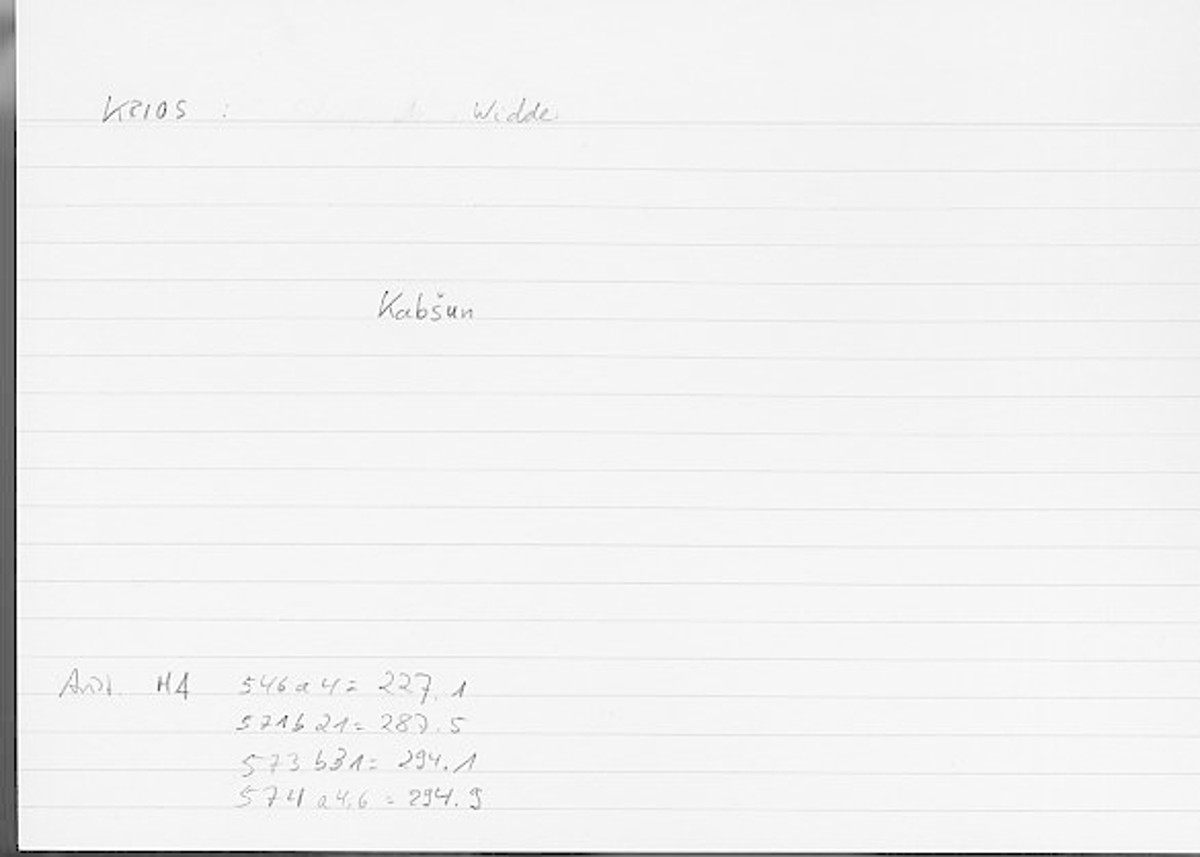 Krios : Widde
Kabšun
Arist. HA 546 a 4 = 227.1
571b 21 = 287.5
573 b31 = 294.1
574 a4.6 = 294.9